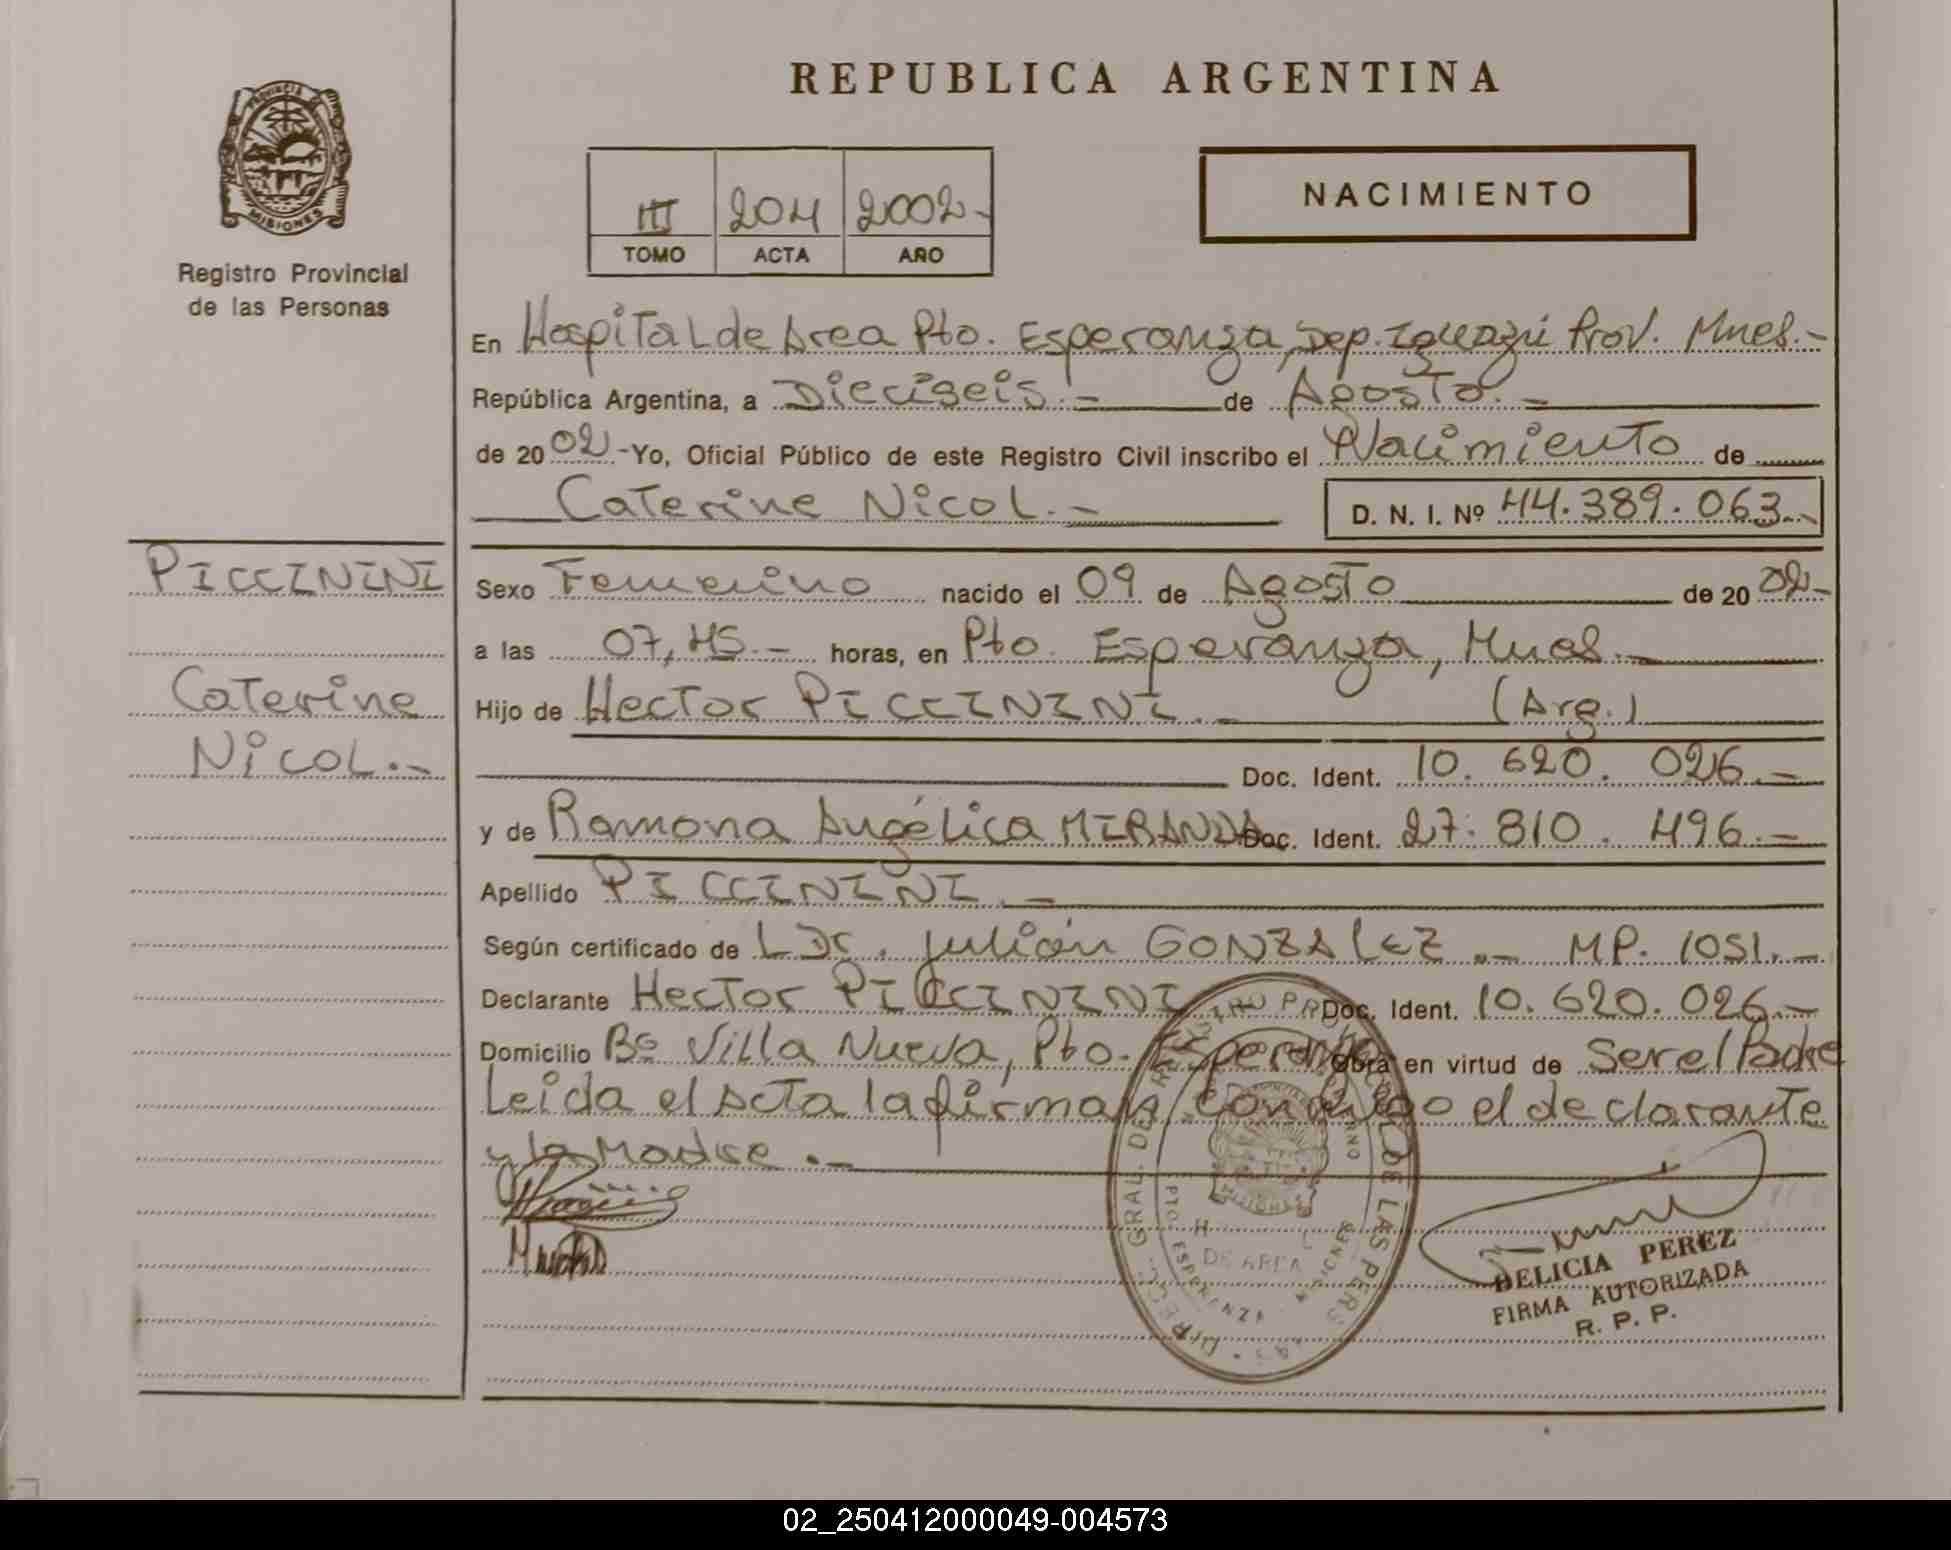 REPUBLICA ARGENTINA
PROVINCIA DE
MISIONES
Registro Provincial
de las Personas
III 204 2002.-
TOMO ACTA AÑO
NACIMIENTO
En Hospital de Area Pto. Esperanza, Dep. Iguazú Prov. Mnes.-
República Argentina, a Dieciseis.- de Agosto.-
de 20 02 -Yo, Oficial Público de este Registro Civil inscribo el Nacimiento de
Caterine Nicol.- D. N. I. Nº 44.389.063.-
PICCININI
Caterine
Nicol.-
Sexo Femenino nacido el 09 de Agosto de 20 02-
a las 07,45.- horas, en Pto. Esperanza, Mnes.-
Hijo de Hector PICCININI.- (Arg.)
Doc. Ident. 10. 620. 026.-
y de Ramona Angélica MIRANDA Doc. Ident. 27. 810. 496.-
Apellido PICCININI.-
Según certificado de L Dr. Julián GONZALEZ.- MP. 1051.-
Declarante Hector PICCININI Doc. Ident. 10.620.026.-
Domicilio Bº Villa Nueva, Pto. Esperanza Obra en virtud de Ser el Padre
Leida el Acta la firman conmigo el declarante
y la Madre.-
DELICIA PEREZ
FIRMA AUTORIZADA
R. P. P.
02_250412000049-004573